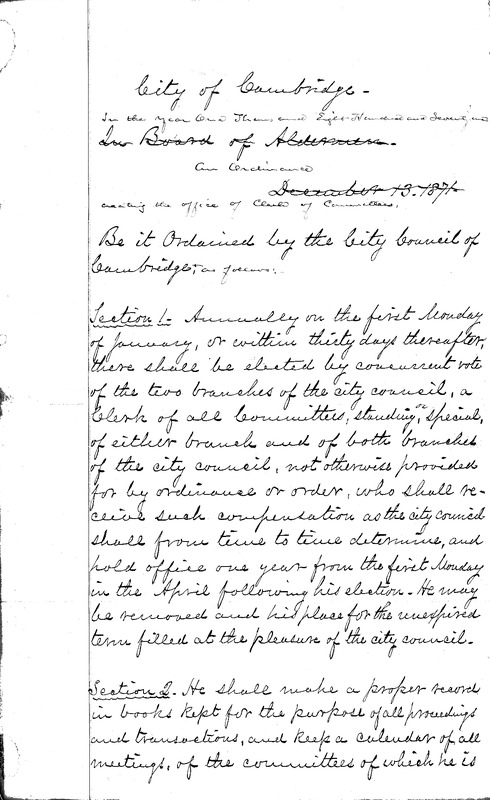 City of Cambridge -
In the year One Thousand Eight Hundred and Seventy
In Board of Aldermen.
An Ordinance
December 13. 1871
creating the office of Clerk of Committees.
Be it Ordained by the City Council of
Cambridge, as follows:
Section 1. Annually on the first Monday
of January, or within thirty days thereafter,
there shall be elected by concurrent vote
of the two branches of the city council, a
Clerk of all Committees, standing, or special,
of either branch and of both branches
of the city council, not otherwise provided
for by ordinance or order, who shall re-
ceive such compensation as the city council
shall from time to time determine, and
hold office one year from the first Monday
in the April following his election. He may
be removed and his place for the unexpired
term filled at the pleasure of the city council.
Section 2. He shall make a proper record
in books kept for the purpose of all proceedings
and transactions, and keep a calendar of all
meetings, of the committees of which he is